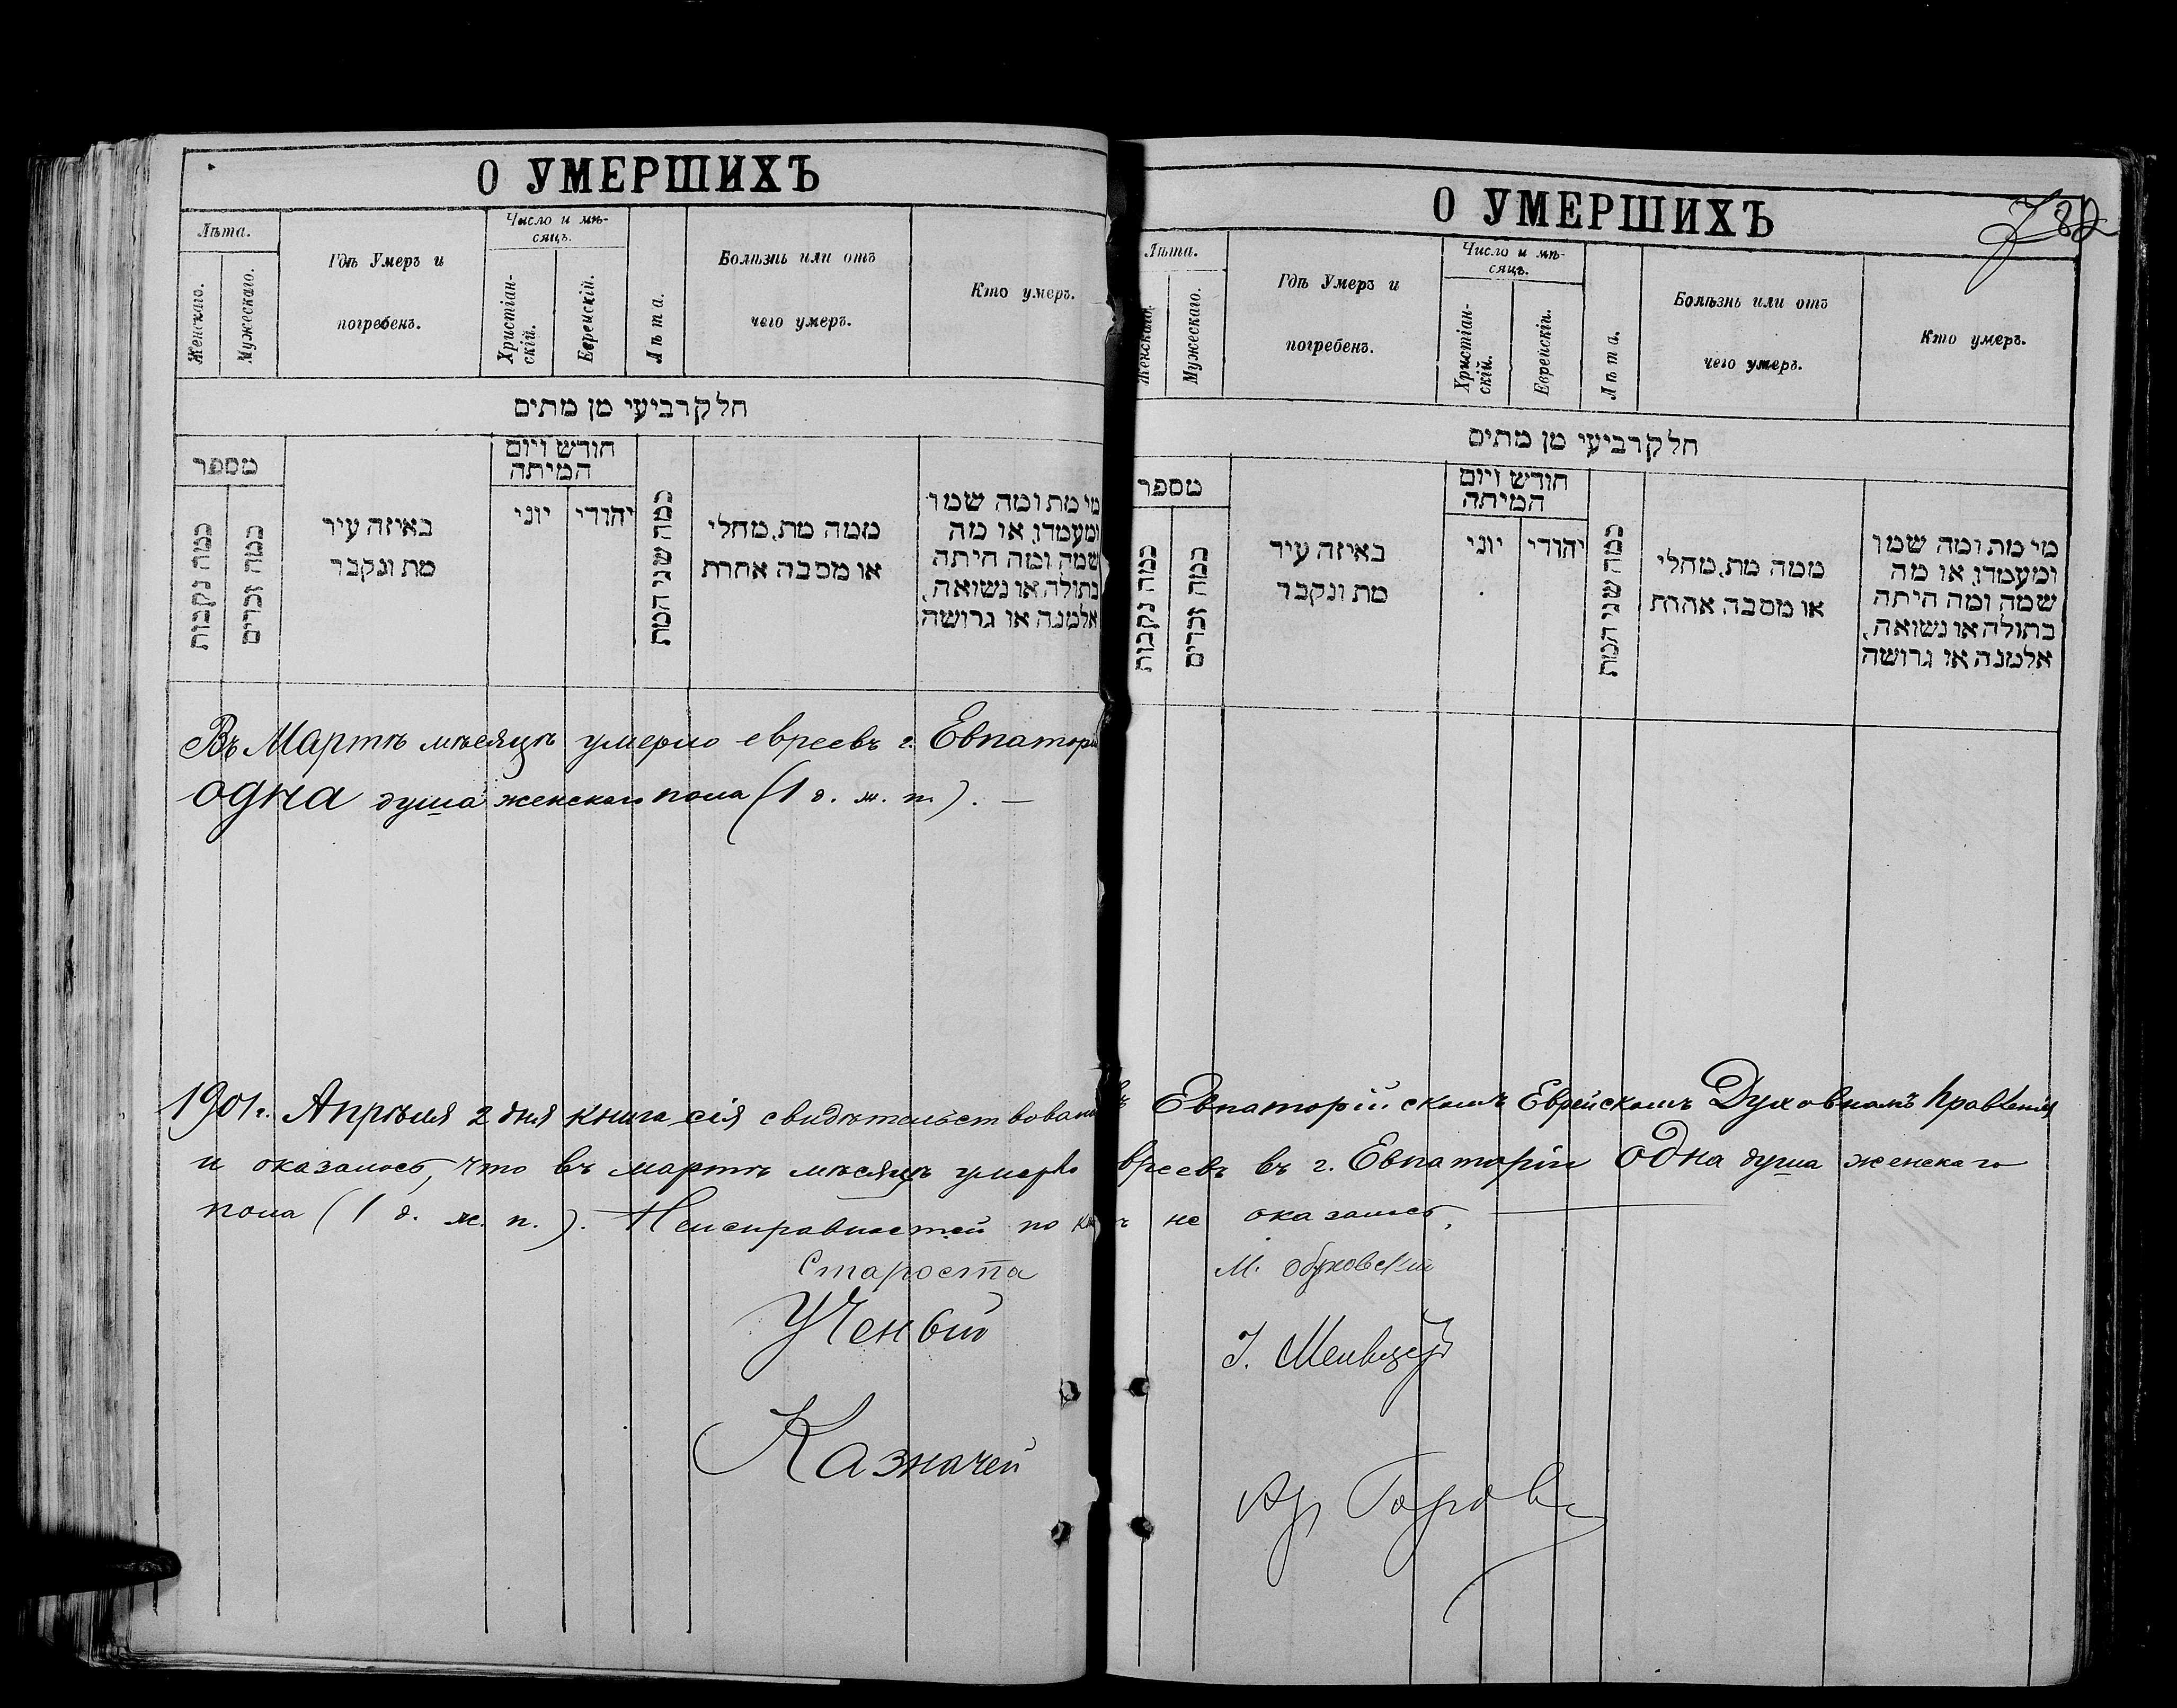 О УМЕРШИХЪ
Лѣта.
Женскаго.
Мужескаго.
Гдѣ Умеръ и
погребенъ.
Число и мѣ-
сяцъ.
Христіан-
скій.
Еврейскій.
Лѣта.
Болѣзнь или отъ
чего умеръ.
Кто умеръ.
חלק רביעי מן מתים
מספר
כמה נקבות
כמה זכרים
באיזה עיר
מת ונקבר
חודש ויום
המיתה
יוני
יהודי
כמה שני המת
ממה מת, מחלי
או מסבה אחרת
מי מת ומה שמו
ומעמדו, או מה
שמה ומה היתה
בתולה או נשואה,
אלמנה או גרושה
Въ Мартѣ мѣсяцѣ умерло евреевъ г. Евпатори
одна душа женскаго пола (1 д. ж. п.). —
1901 г. Апрѣля 2 дня книга сія свидѣтельствована
и оказалось, что въ мартѣ мѣсяцѣ умерло
пола (1 д. ж. п.). Неисправностей по кн
Староста
Ученый
Казначей
О УМЕРШИХЪ
Лѣта.
Женскаго.
Мужескаго.
Гдѣ Умеръ и
погребенъ.
Число и мѣ-
сяцъ.
Христіан-
скій.
Еврейскій.
Лѣта.
Болѣзнь или отъ
чего умеръ.
Кто умеръ.
חלק רביעי מן מתים
מספר
כמה נקבות
כמה זכרים
באיזה עיר
מת ונקבר
חודש ויום
המיתה
יוני
יהודי
כמה שני המת
ממה מת, מחלי
או מסבה אחרת
מי מת ומה שמו
ומעמדו, או מה
שמה ומה היתה
בתולה או נשואה,
אלמנה או גרושה
въ Евпаторійскомъ Еврейскомъ Духовномъ Правленіи
вреевъ въ г. Евпаторіи одна душа женскаго
не оказалось.
М.
І.